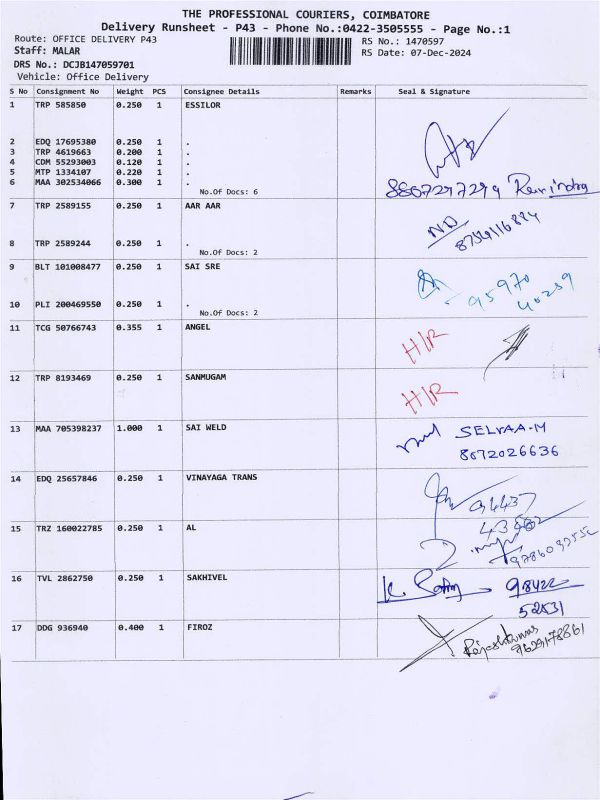 THE PROFESSIONAL COURIERS, COIMBATORE
Delivery Runsheet - P43 - Phone No.:0422-3505555 - Page No.:1
Route: OFFICE DELIVERY P43 RS No.: 1470597
Staff: MALAR RS Date: 07-Dec-2024
DRS No.: DCJB147059701
Vehicle: Office Delivery
S No Consignment No Weight PCS Consignee Details Remarks Seal & Signature
1 TRP 585850 0.250 1 ESSILOR
2 EDQ 17695380 0.250 1 .
3 TRP 4619663 0.200 1 .
4 CDM 55293003 0.120 1 .
5 MTP 1334107 0.220 1 .
6 MAA 302534066 0.300 1 .
No.Of Docs: 6
7 TRP 2589155 0.250 1 AAR AAR
8 TRP 2589244 0.250 1 .
No.Of Docs: 2
9 BLT 101008477 0.250 1 SAI SRE
95970
40239
10 PLI 200469550 0.250 1 .
No.Of Docs: 2
11 TCG 50766743 0.355 1 ANGEL
H/R
12 TRP 8193469 0.250 1 SANMUGAM
H/R
13 MAA 705398237 1.000 1 SAI WELD
SELVAA-M
8072026636
14 EDQ 25657846 0.250 1 VINAYAGA TRANS
94437
15 TRZ 160022785 0.250 1 AL
16 TVL 2862750 0.250 1 SAKHIVEL
98422
52531
17 DDG 936940 0.400 1 FIROZ
Rajeshkumar
9629178861